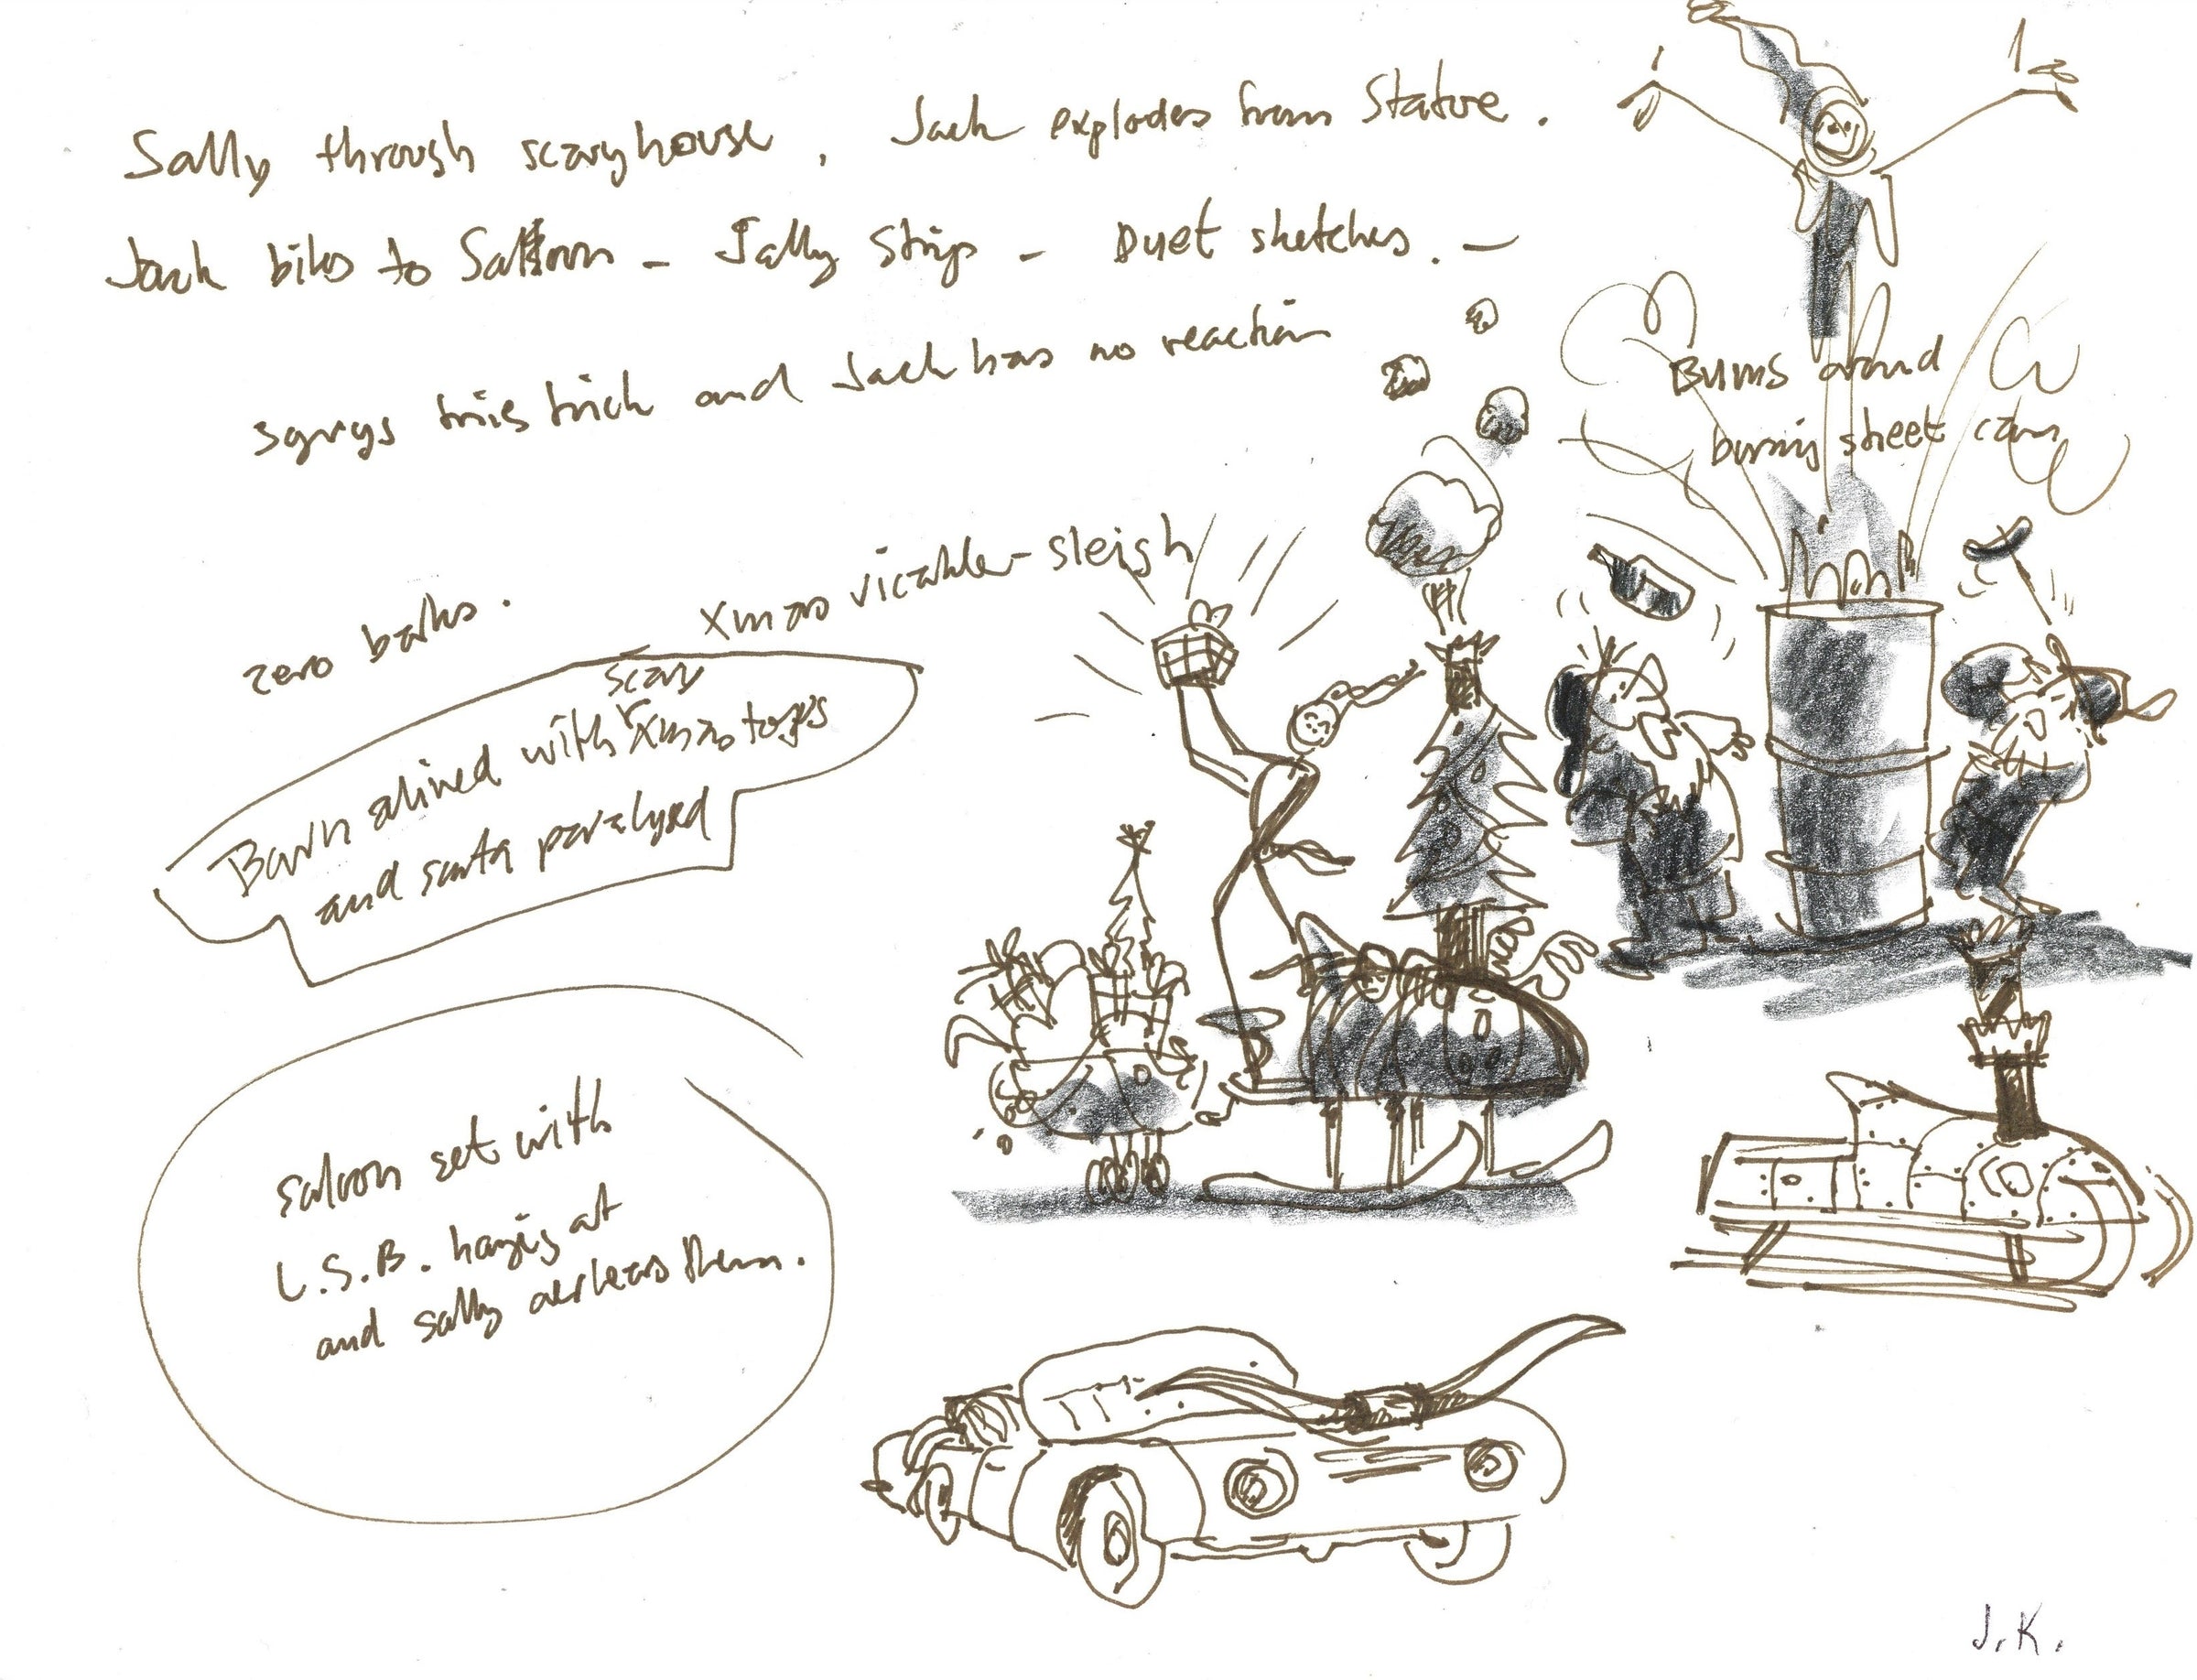 Sally through scaryhouse, Jack explodes from Statue.
Jack bikes to Saloon - Sally Strips - Duet sketches. -
3 guys tries trick and Jack has no reaction
Bums around
burning street cans
zero barks.
Xmas vicahle-sleigh
scary
Barn alined with Xmas toys
and santa paralyzed
saloon set with
L.S.B. hangig at
and sally them.
J.K.